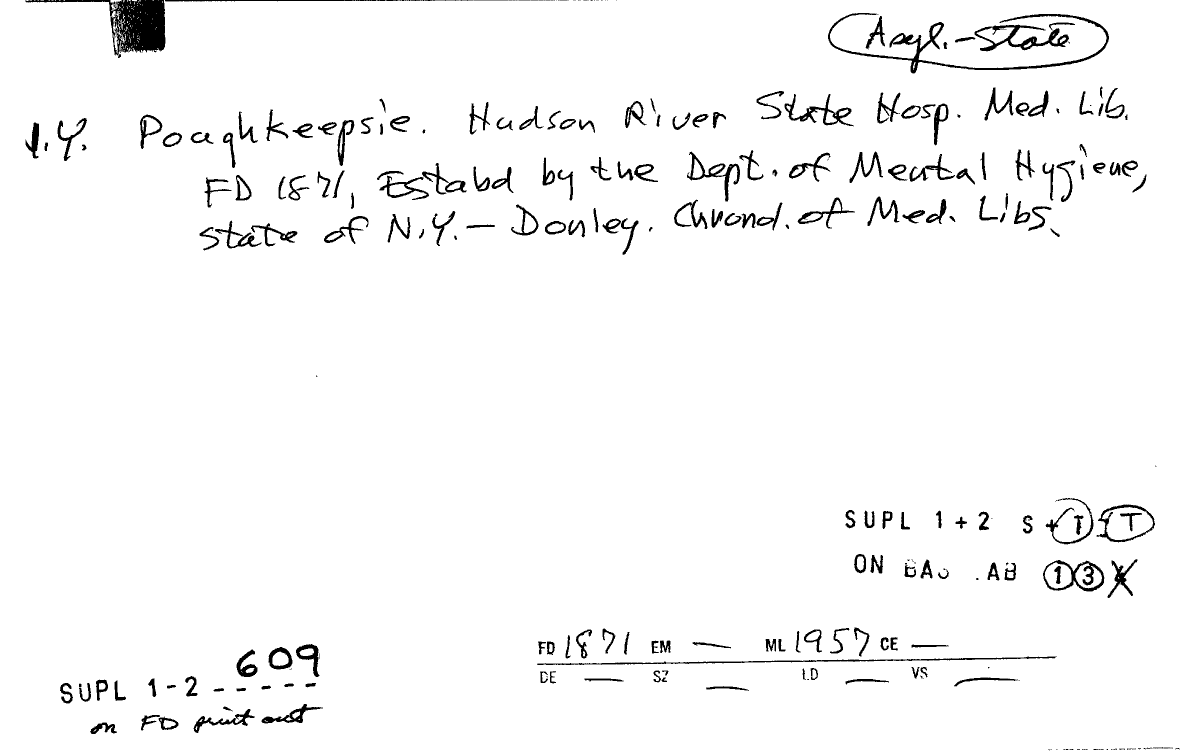 Asyl.-State
N.Y. Poughkeepsie. Hudson River State Hosp. Med. Lib.
FD 1871, Estabd by the Dept. of Mental Hygiene,
State of N.Y. — Donley. Chronol. of Med. Libs.
SUPL 1+2 S+T T
ON BAS .AB 1 3
FD 1871 EM — ML 1957 CE —
DE — SZ — LD — VS —
SUPL 1-2 - 609
on FD print out